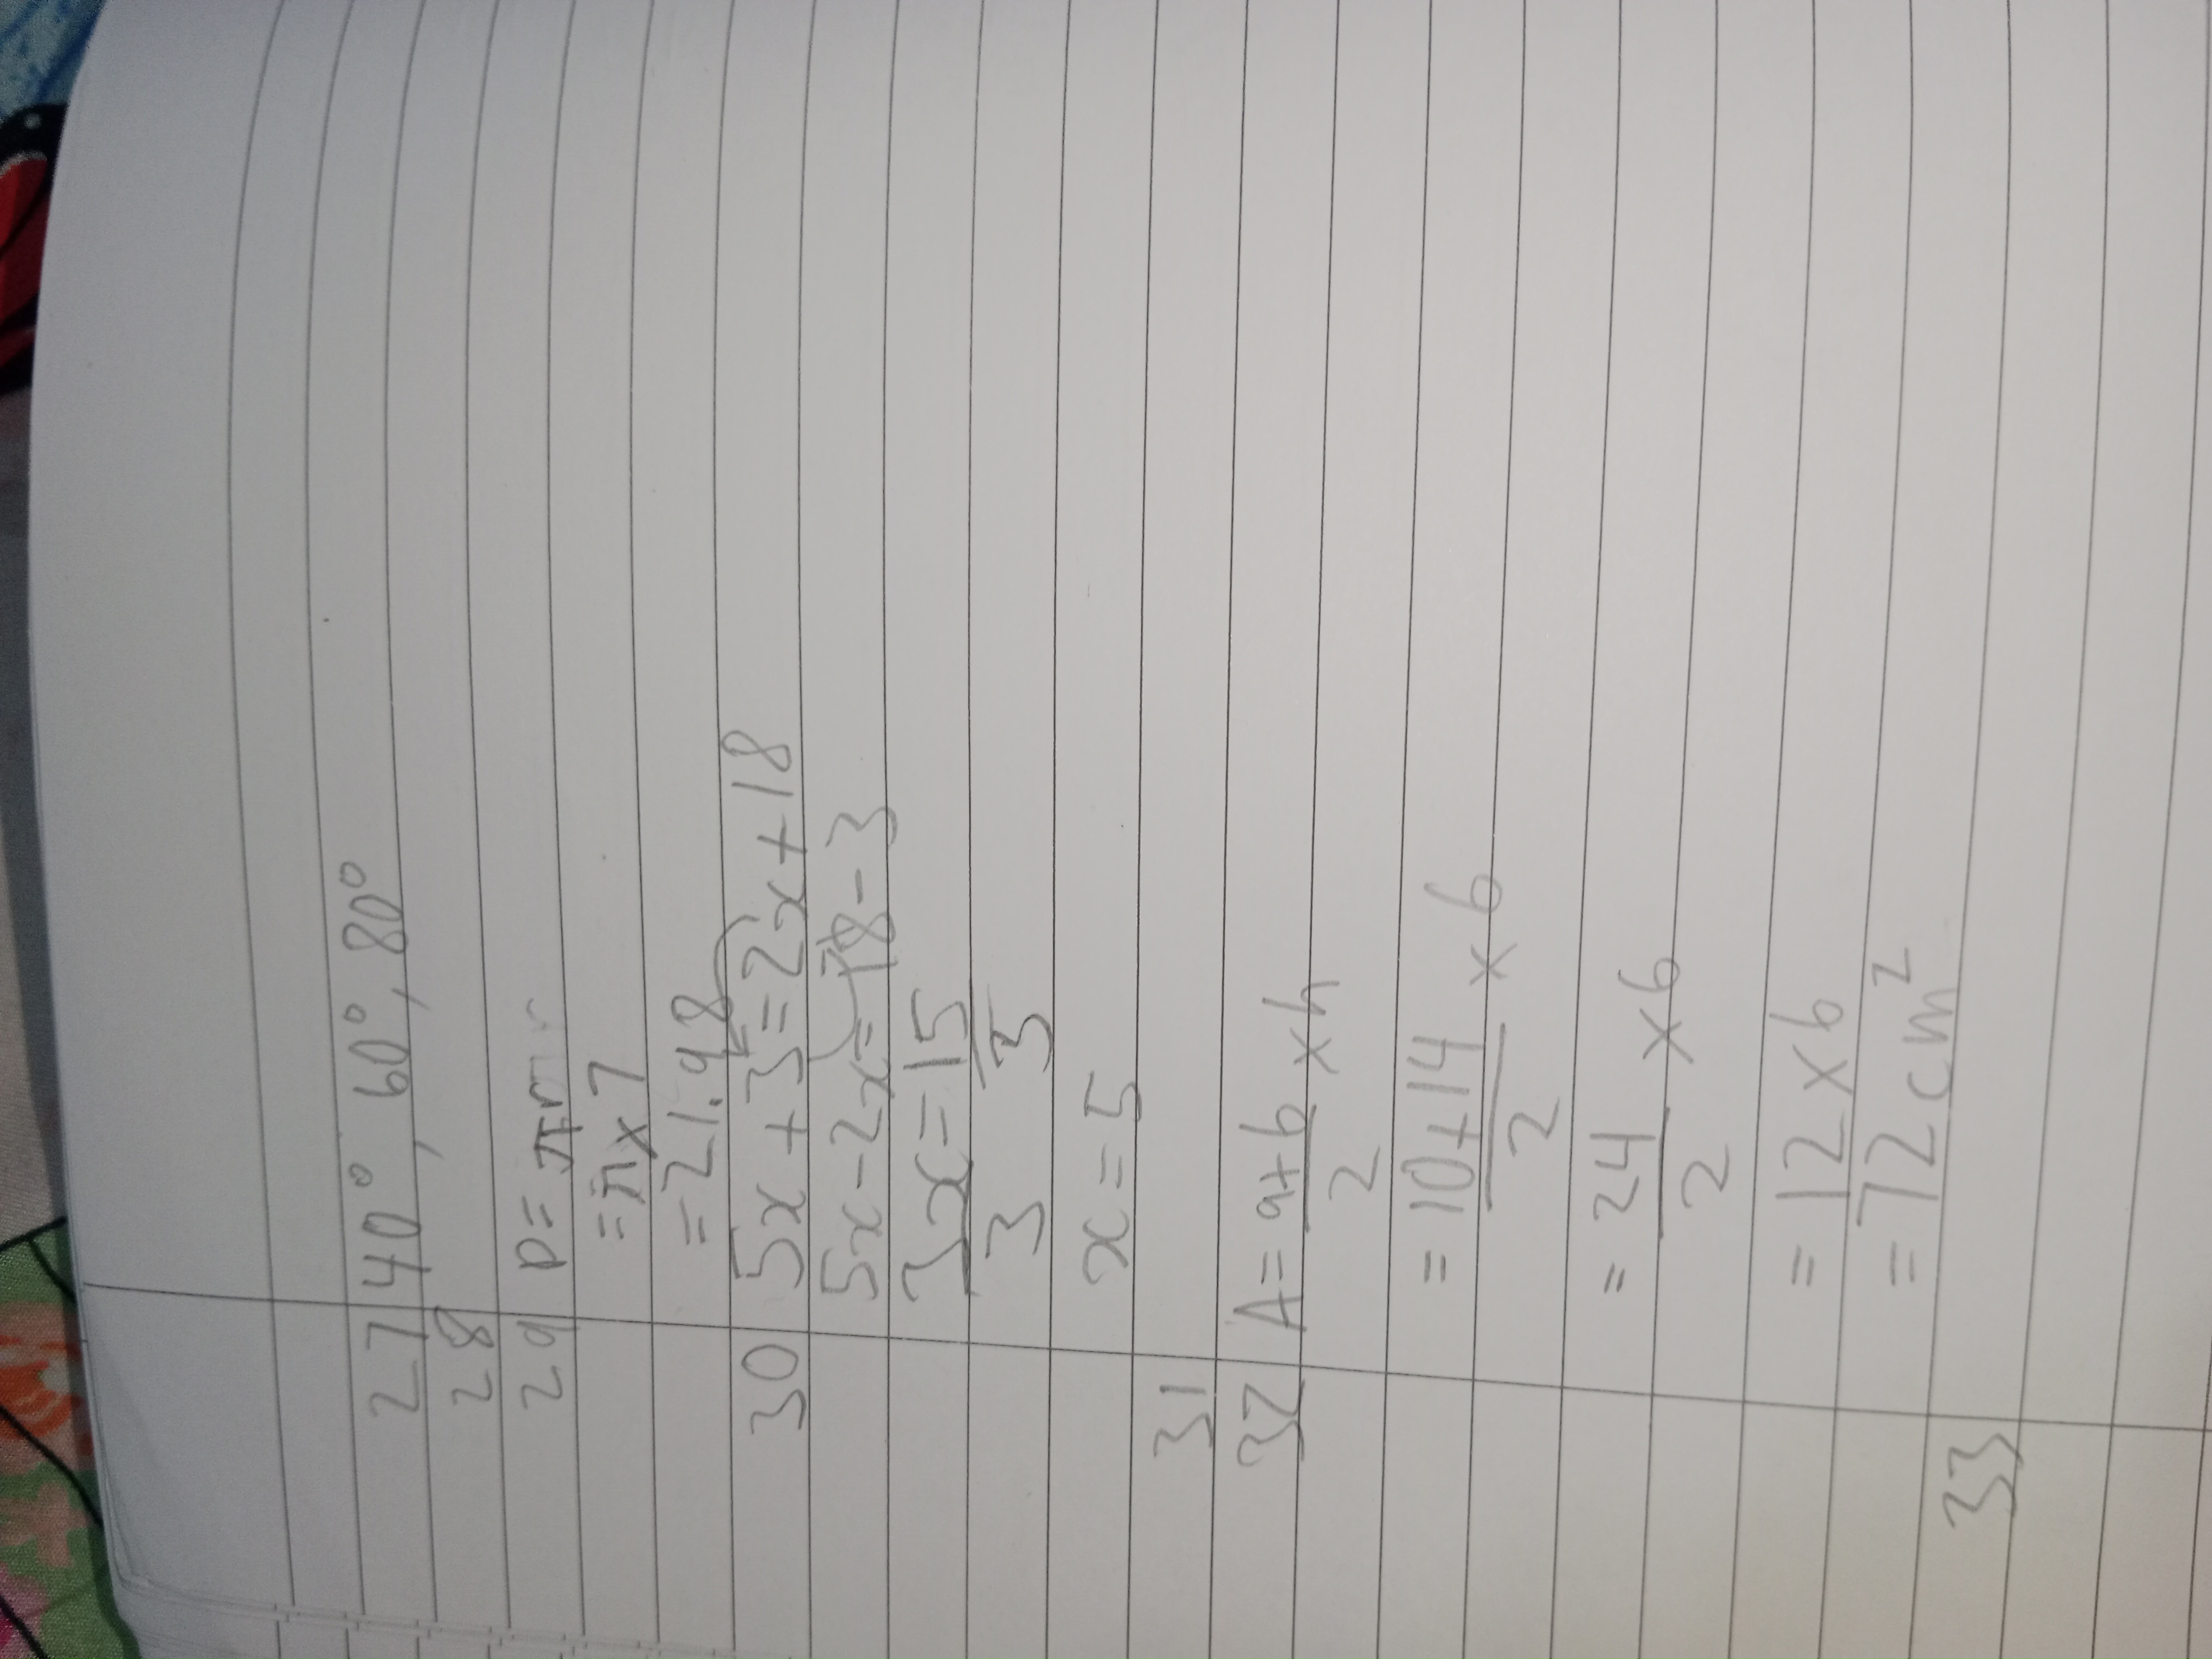 27 40°, 60°, 80°
28
29 p = πr
= π x 7
= 21.98
30 5x + 3 = 2x + 18
5x - 2x = 18 - 3
3x = 15
3 3
x = 5
31
32 A = a+b x h
2
= 10+14 x 6
2
= 24 x 6
2
= 12 x 6
= 72 cm²
33